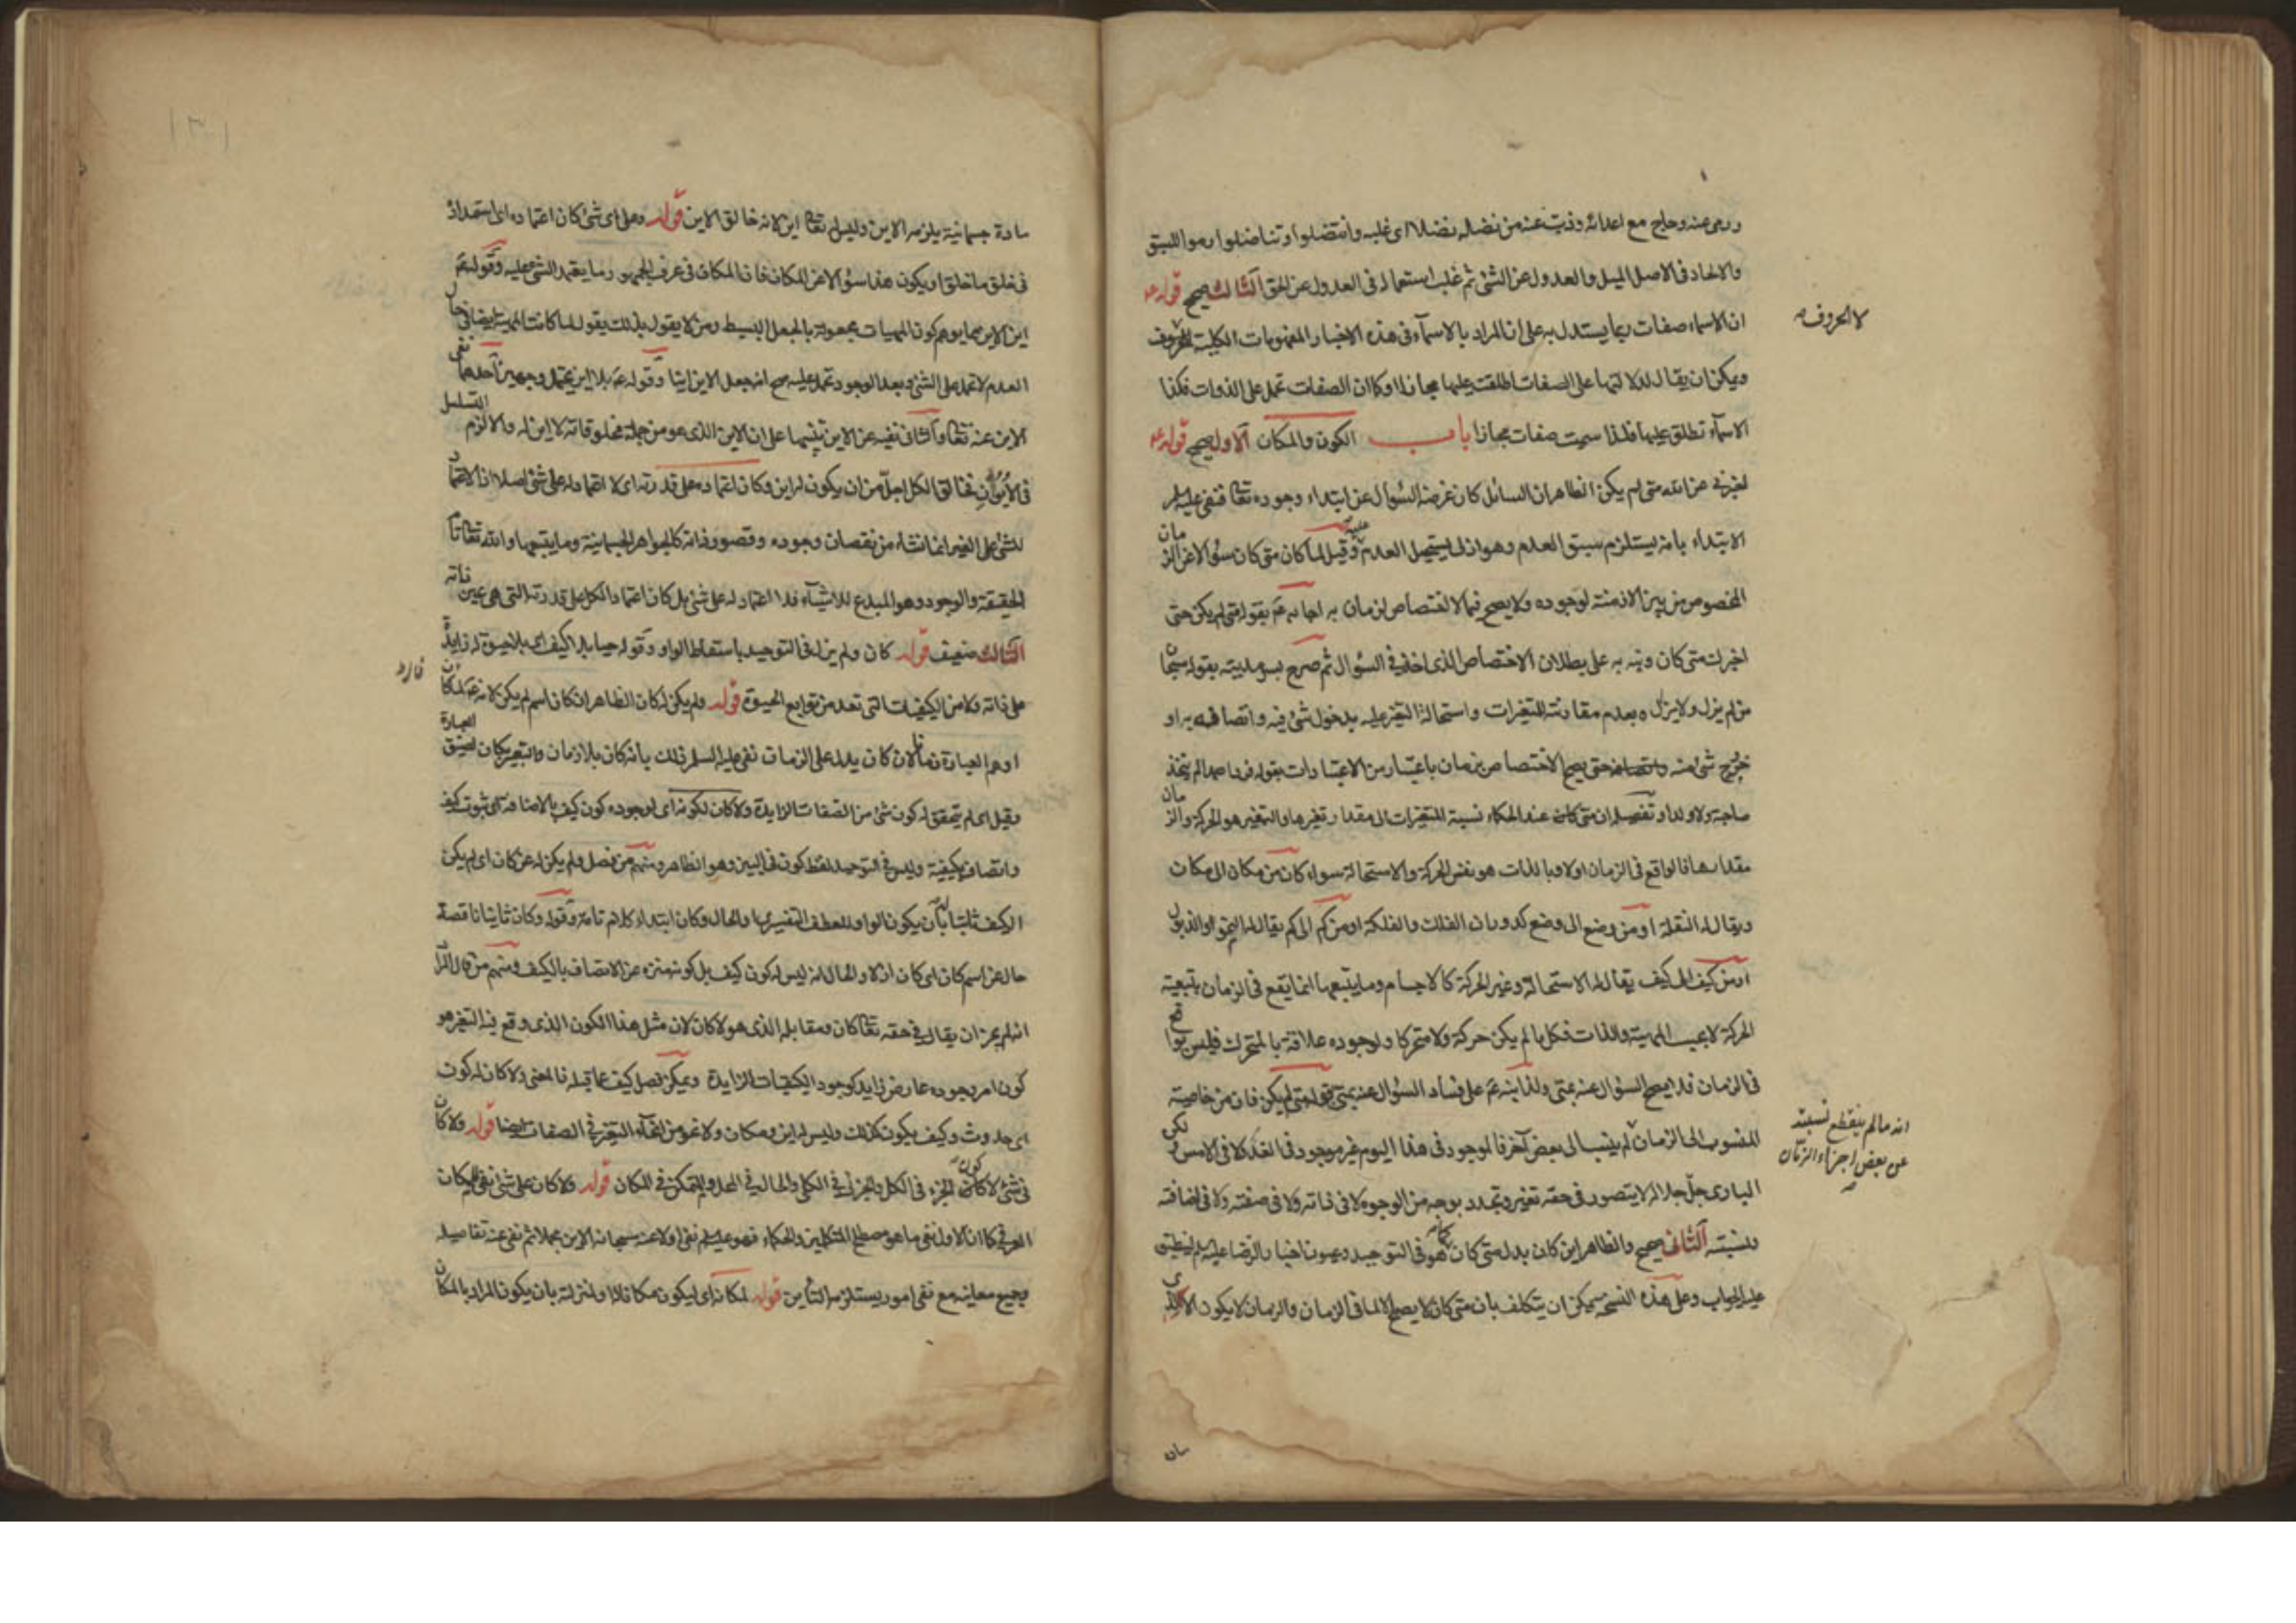 ورمى عنه وحاج مع اعدائه وذب عنه من نضاله نضلا اى غلبه وانتضلوا وتناضلوا رموا للسبق
والالحاد فى الاصل الميل والعدول عن الشئ ثم غلب استعماله فى العدول عن الحق الثالث صحيح قوله عه
ان الاسماء صفات ربما يستدل به على ان المراد بالاسماء فى هذه الاخبار المفهومات الكلية لا الحروف
ويمكن ان يقال لدلالتها على الصفات اطلقت عليها مجازا او كما ان الصفات تحمل على الذوات فكذا
الاسماء تطلق عليها فلذا سميت صفات مجازا باب الكون والمكان الاول صحيح قوله عه
اخبرنى عن الله متى لم يكن الظاهر ان السائل كان غرضه السؤال عن ابتداء وجوده تعا فنفى عليلم
الابتداء بانه يستلزم سبق العدم وهو ازلى يستحيل العدم عليه وقيل لما كان متى كان سؤالا عن الزمان
المخصوص من بين الازمنة لوجوده ولا يصح فيما لا اختصاص لزمان به اجابه عم بقوله متى لم يكن حتى
اخبرك متى كان ونبه به على بطلان الاختصاص الذى اخذ فى السؤال ثم صرح بسرمديته بقوله سبحان
من لم يزل ولا يزال وبعدم مقارنته للتغيرات واستحالة التغير عليه بدخول شئ فيه واتصافه به او
خروج شئ منه حتى يصح الاختصاص بزمان باعتبار من الاعتبارات بقوله فردا صمدا لم يتخذ
صاحبة ولا ولدا وتفصيله ان متى كان عند الحكماء نسبة المتغيرات الى مقدار تغيرها والتغير هو الحركة والزمان
مقدارها فالواقع فى الزمان اولا وبالذات هو نفس الحركة والاستحالة سواء كان من مكان الى مكان
ويقال له النقلة او من وضع الى وضع كدوران الفلك والفلكة او من كم الى كم يقال له النمو او الذبول
او من كيف الى كيف يقال له الاستحالة وغير الحركة كالاجسام وما يتبعها انما يقع فى الزمان بتبعية
الحركة لا بحسب المهية والذات فكل ما لم يكن حركة ولا متحركا ولا لوجوده علاقة بالمتحرك فليس بواقع
فى الزمان فلا يصح السؤال عنه بمتى ولذا نبه عم على فساد السؤال عنه بمتى بقوله متى لم يكن فان من خاصية
المنسوب الى الزمان انه ما لم ينقطع نسبته عن بعض اجزاء الزمان لم ينسب الى بعض آخر فالموجود فى هذا اليوم غير موجود فى الغد ولا فى الامس ولكن
البارى جل جلاله لا يتصور فى حقه تغير وتجدد بوجه من الوجوه لا فى ذاته ولا فى صفته ولا فى اضافته
ونسبته الثانى صحيح والظاهر اين كان بدل متى كان كما هو فى التوحيد وعيون اخبار الرضا عليلم لينطبق
عليه الجواب وعلى هذه النسخة يمكن ان يتكلف بان متى كان لا يصح الا لما فى الزمان والزمان لا يكون الا
لا الحروف
انه ما لم ينقطع نسبته
عن بعض اجزاء الزمان
١٣١
مادة جسمانية يلزمه الاين وليس له تعا اين لانه خالق الاين قوله وعلى اى شئ كان اعتماده اى استمداد
فى خلق ما خلق او يكون هذا سؤالا عن المكان فان المكان فى عرف الجمهور ما يعتمد الشئ عليه وقوله عم
اين الاين مما يوهم كون المهيات مجعولة بالجعل البسيط ومن لا يقول بذلك يقول لما كانت المهية ايضا فى حال
العدم لا تحمل على الشئ وبعد الوجود تحمل عليه صح انه جعل الاين اينا وقوله عم بلا اين يحتمل وجهين احدهما نفى
الاين عنه تعا والثانى نفيه عن الاين تنبيها على ان الاين الذى هو من جملة مخلوقاته لا اين له والا لزم التسلسل
فى الايون فخالق الكل اجل من ان يكون له اين وكان اعتماده على قدرته اى لا اعتماد له على شئ اصلا اذ الاعتماد
للشئ على الغير انما انشاء من نقصان وجوده وقصور ذاته كالجواهر الجسمانية وما يتبعها والله تعا تام
الحقيقة والوجود وهو المبدع للاشياء فلا اعتماد له على شئ بل كان اعتماد الكل على قدرته التى هى عين ذاته
الثالث ضعيف قوله كان ولم يزل فى التوحيد باسقاط الواو وقوله حيا بلا كيف اى بلا حيوة زايدة
على ذاته ولا من الكيفيات التى تعد من توابع الحيوة قوله ولم يكن له كان الظاهر ان كان اسم لم يكن لانه عم لما كان
اوهم العبارة زمانا لان كان يدل على الزمان نفى عليه السلم ذلك بانه كان بلا زمان والتعبير بكان لضيق العبارة
وقيل اى لم يتحقق له كون شئ من الصفات الزايدة ولا كان لكونه اى لوجوده كون كيف بالاضافة اى ثبوت كيف
واتصاف بكيفية وليس فى التوحيد لفظ كون فى البين وهو الظاهر ومنهم من فصل ولم يكن له عن كان اى لم يكن
الكيف ثابتا له بان يكون الواو للعطف التفسيرى او الحال وكان ابتداء كلام تامة وقوله وكان ثانيا ناقصة
حال عن اسم كان اى كان ازلا والحال انه ليس له كون كيف بل كونه منزه عن الاتصاف بالكيف ومنهم من قال المراد
انه لم يجز ان يقال فى حقه تعا كان ومقابله الذى هو لا كان لان مثل هذا الكون الذى وقع فيه التغير هو
كون امر وجوده عارض زايد كوجود الكيفيات الزايدة ويمكن فصل كيف عما قبله فالمعنى ولا كان له كون
اى حدوث وكيف يكون كذلك وليس له اين ومكان ولا نحو من انحاء التغير فى الصفات ايضا قوله ولا كان
فى شئ لا كون الجزء فى الكل والجزئى فى الكلى والحال فى المحل والمتمكن فى المكان قوله ولا كان على شئ نفى المكان
العرفى كما ان الاول نفى ما هو مصطلح المتكلمين والحكماء فهو عليلم نفى اولا عنه سبحانه الاين مجملا ثم نفى عنه تفاصيله
بجميع معانيه مع نفى امور يستلزمه التأين قوله لمكانه اى ليكون مكانا له او لمنزلته بان يكون المراد بالمكان